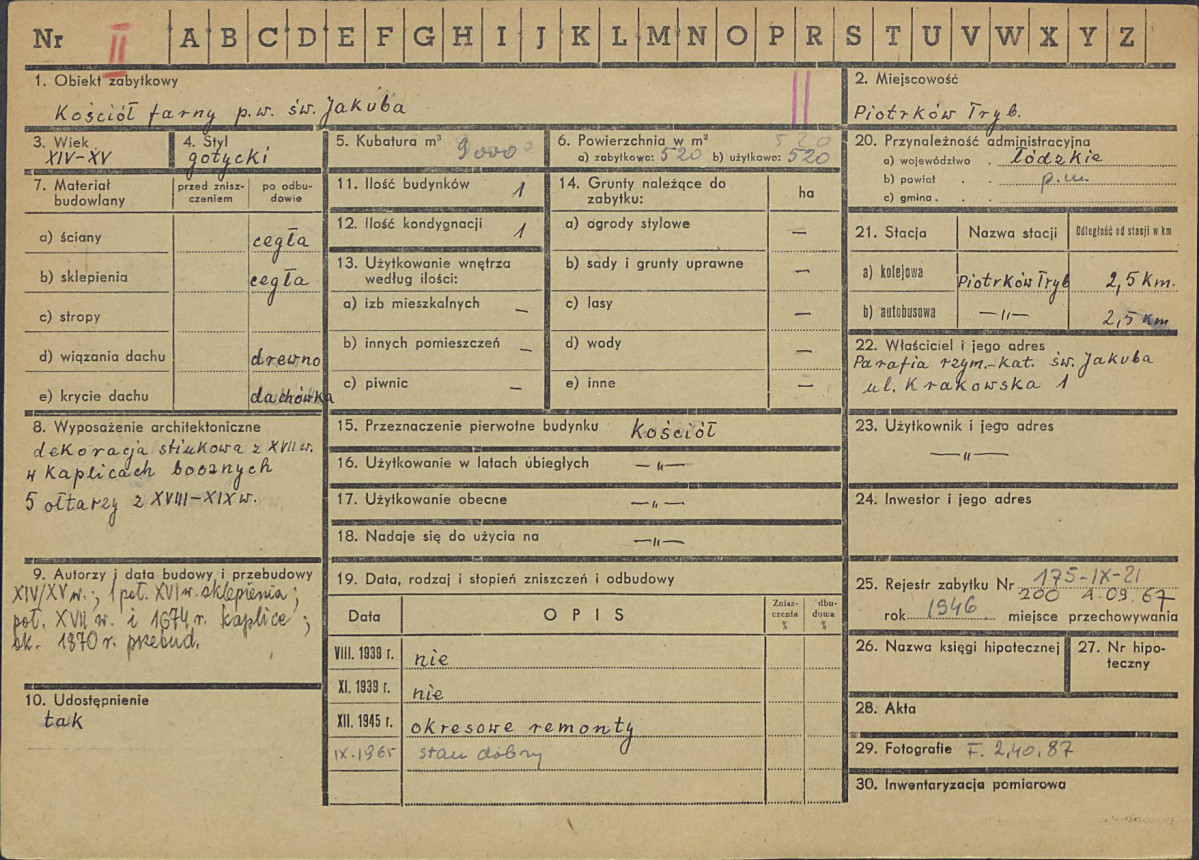 Nr II A B C D E F G H I J K L M N O P R S T U V W X Y Z
1. Obiekt zabytkowy
Kościół farny p.w. św. Jakuba
2. Miejscowość
Piotrków Tryb.
3. Wiek
XIV-XV
4. Styl
gotycki
5. Kubatura m³ 9000
6. Powierzchnia w m² 520
a) zabytkowa: 520 b) użytkowa: 520
20. Przynależność administracyjna
a) województwo . łódzkie
b) powiat . . p.m.
c) gmina . . .
7. Materiał budowlany
przed zniszczeniem
po odbudowie
a) ściany cegła
b) sklepienia cegła
c) stropy
d) wiązania dachu drewno
e) krycie dachu dachówka
11. Ilość budynków 1
12. Ilość kondygnacji 1
13. Użytkowanie wnętrza
według ilości:
a) izb mieszkalnych –
b) innych pomieszczeń –
c) piwnic –
14. Grunty należące do
zabytku:
ha
a) ogrody stylowe –
b) sady i grunty uprawne –
c) lasy –
d) wody –
e) inne –
21. Stacja Nazwa stacji Odległość od stacji w km
a) kolejowa Piotrków Tryb 2,5 km.
b) autobusowa –„– 2,5 km
22. Właściciel i jego adres
Parafia rzym.-kat. św. Jakuba
ul. Krakowska 1
8. Wyposażenie architektoniczne
dekoracja stiukowa z XVII w.
w kaplicach bocznych
5 ołtarzy z XVIII-XIX w.
15. Przeznaczenie pierwotne budynku kościół
16. Użytkowanie w latach ubiegłych –„–
17. Użytkowanie obecne –„–
18. Nadaje się do użycia na –„–
23. Użytkownik i jego adres
–„–
24. Inwestor i jego adres
9. Autorzy i data budowy i przebudowy
XIV/XV w.; 1 poł. XVI w. sklepienia;
poł. XVII w. i 1674 r. kaplice;
ok. 1870 r. przebud.
10. Udostępnienie
tak
19. Data, rodzaj i stopień zniszczeń i odbudowy
Data OPIS Zniszczenia % dbudowa %
VIII. 1939 r. nie
XI. 1939 r. nie
XII. 1945 r. okresowe remonty
IX.1965 stan dobry
25. Rejestr zabytku Nr 175-IX-21
200 A.09.67
rok 1946 miejsce przechowywania
26. Nazwa księgi hipotecznej
27. Nr hipoteczny
28. Akta
29. Fotografie F. 2,40,87
30. Inwentaryzacja pomiarowa